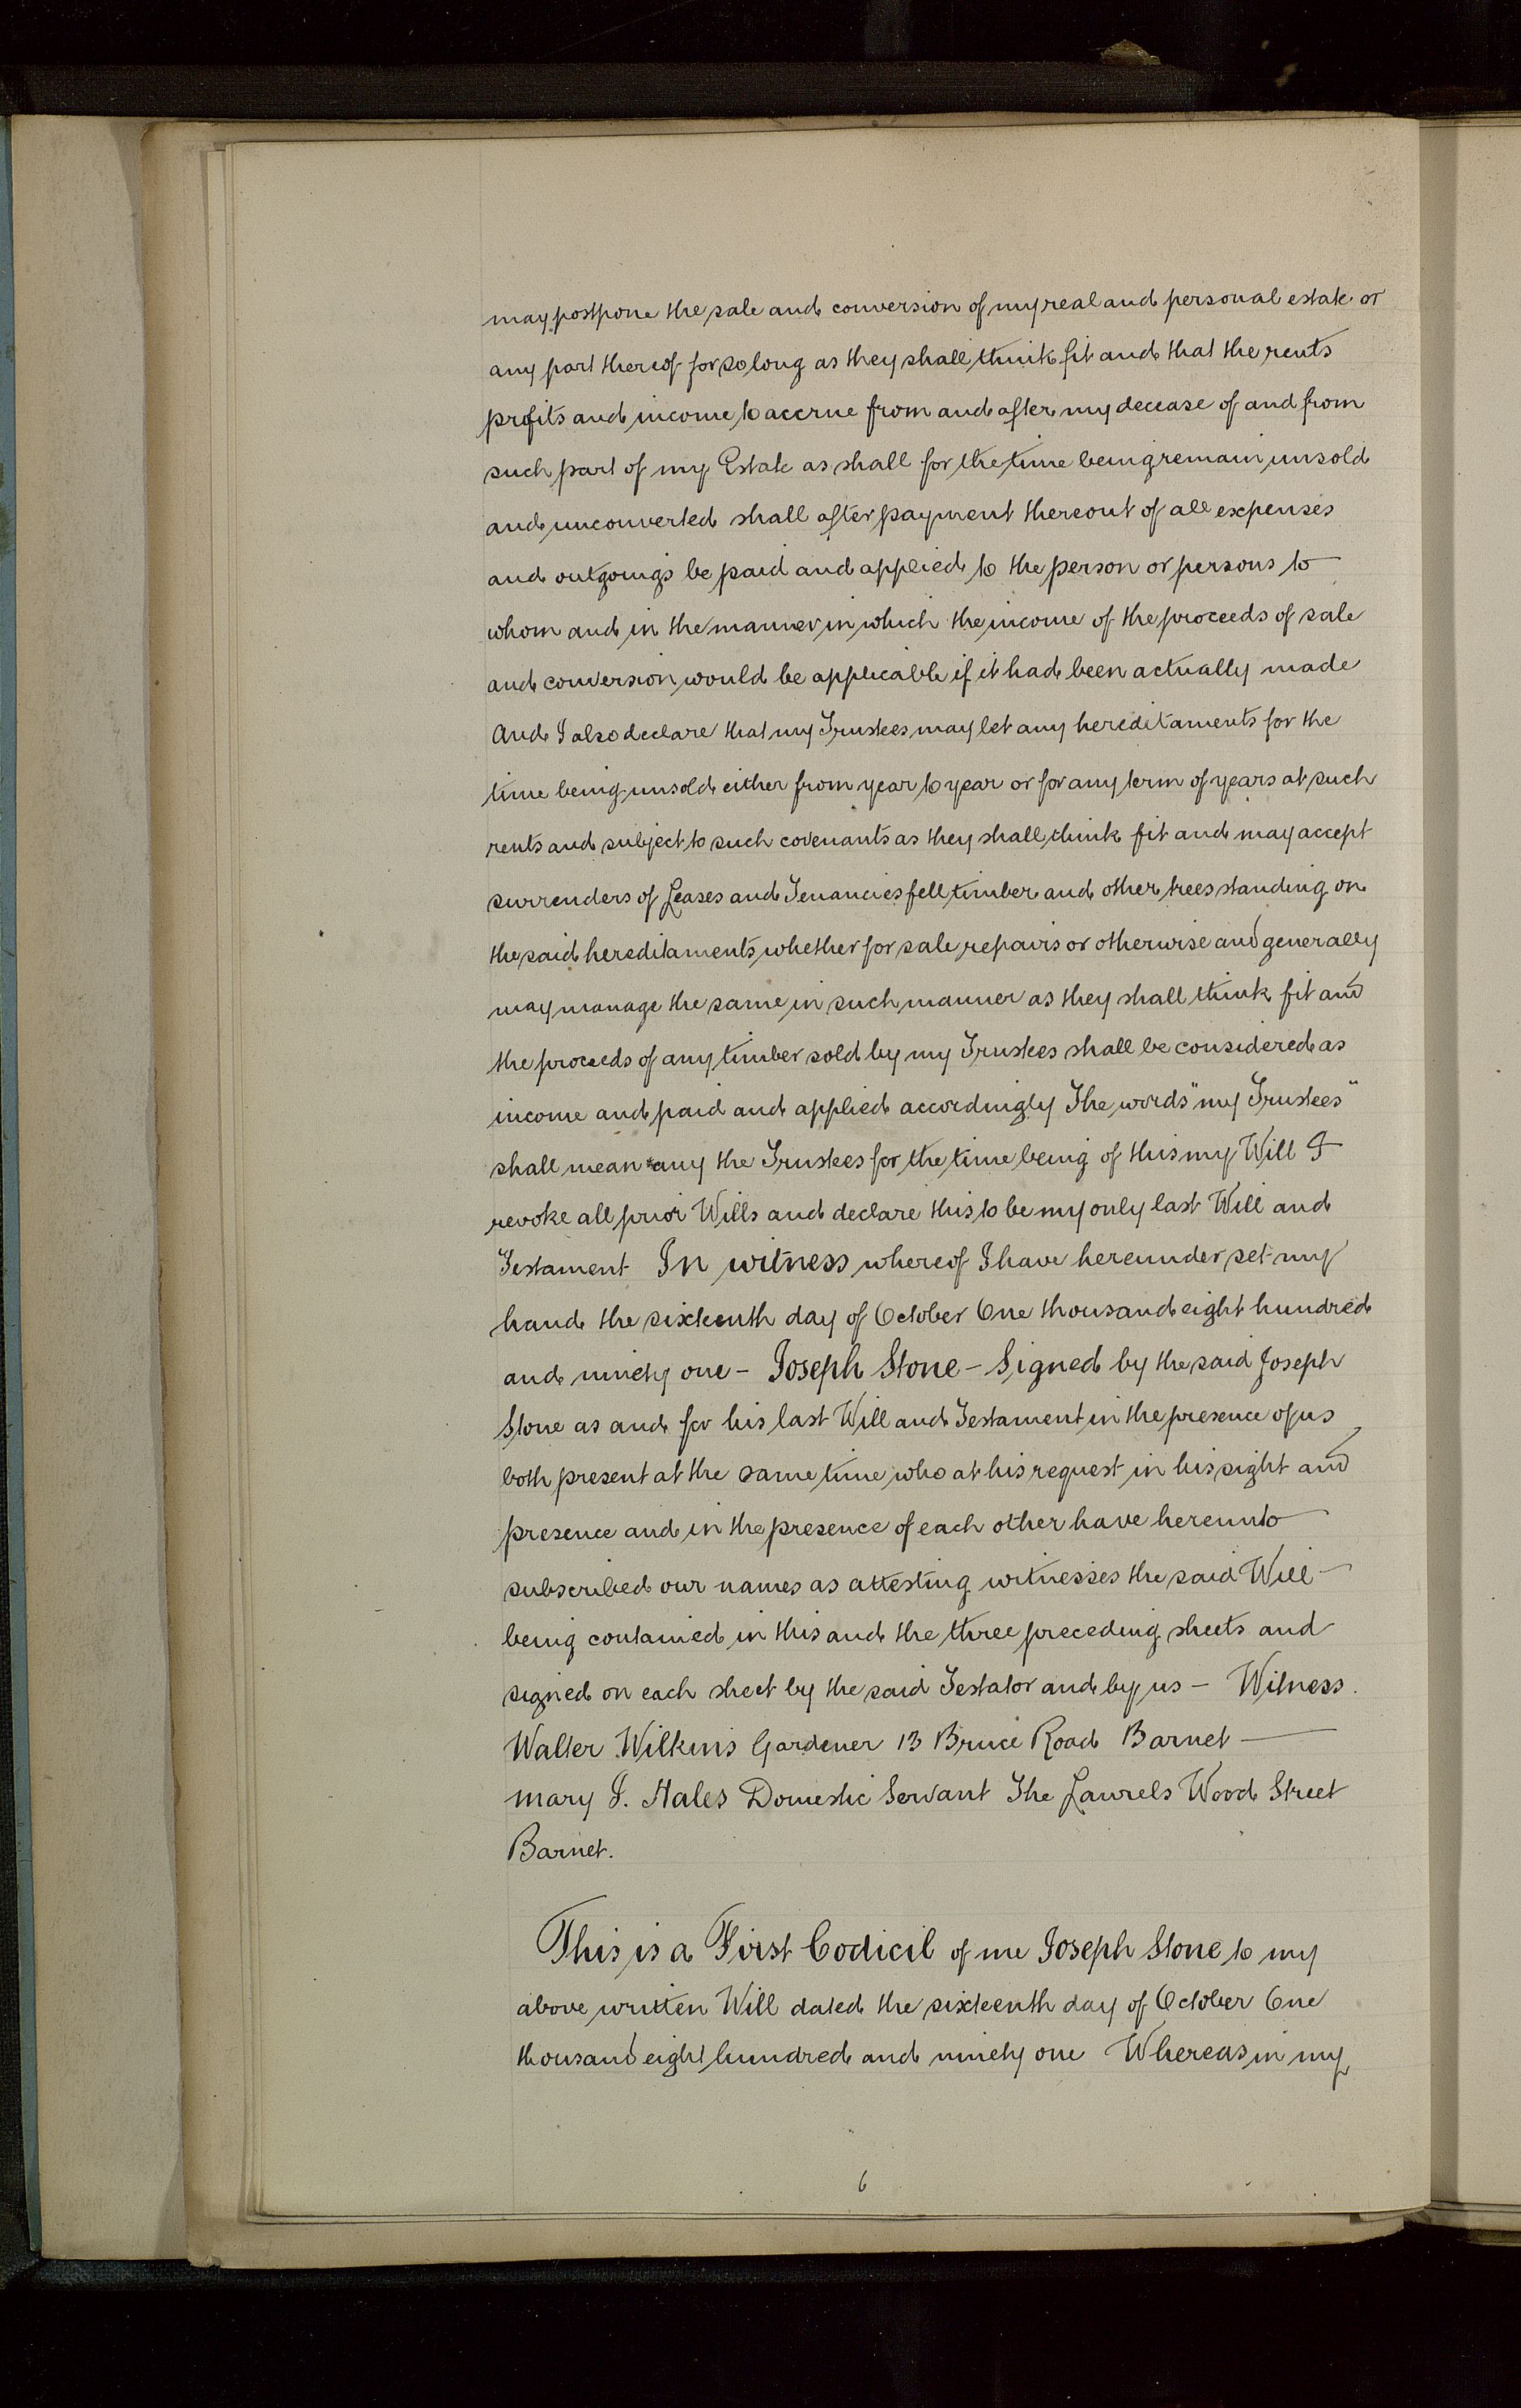 may postpone the sale and conversion of my real and personal estate or
any part thereof for so long as they shall think fit and that the rents
profits and income to accrue from and after my decease of and from
such part of my Estate as shall for the time being remain unsold
and unconverted shall after payment thereout of all expenses
and outgoings be paid and applied to the person or persons to
whom and in the manner in which the income of the proceeds of sale
and conversion would be applicable if it had been actually made
And I also declare that my Trustees may let any hereditaments for the
time being unsold either from year to year or for any term of years at such
rents and subject to such covenants as they shall think fit and may accept
surrenders of Leases and Tenancies fell timber and other trees standing on
the said hereditaments whether for sale repairs or otherwise and generally
may manage the same in such manner as they shall think fit and
the proceeds of any timber sold by my Trustees shall be considered as
income and paid and applied accordingly The words "my Trustees"
shall mean any the Trustees for the time being of this my Will I
revoke all prior Wills and declare this to be my only last Will and
Testament In witness whereof I have hereunder set my
hand the sixteenth day of October One thousand eight hundred
and ninety one – Joseph Stone – Signed by the said Joseph
Stone as and for his last Will and Testament in the presence of us
both present at the same time who at his request in his sight and
presence and in the presence of each other have hereunto
subscribed our names as attesting witnesses the said Will
being contained in this and the three preceding sheets and
signed on each sheet by the said Testator and by us – Witness.
Walter Wilkins Gardener 13 Bruce Road Barnet —
Mary J. Hales Domestic Servant The Laurels Wood Street
Barnet.
This is a First Codicil of me Joseph Stone to my
above written Will dated the sixteenth day of October One
thousand eight hundred and ninety one Whereas in my
6